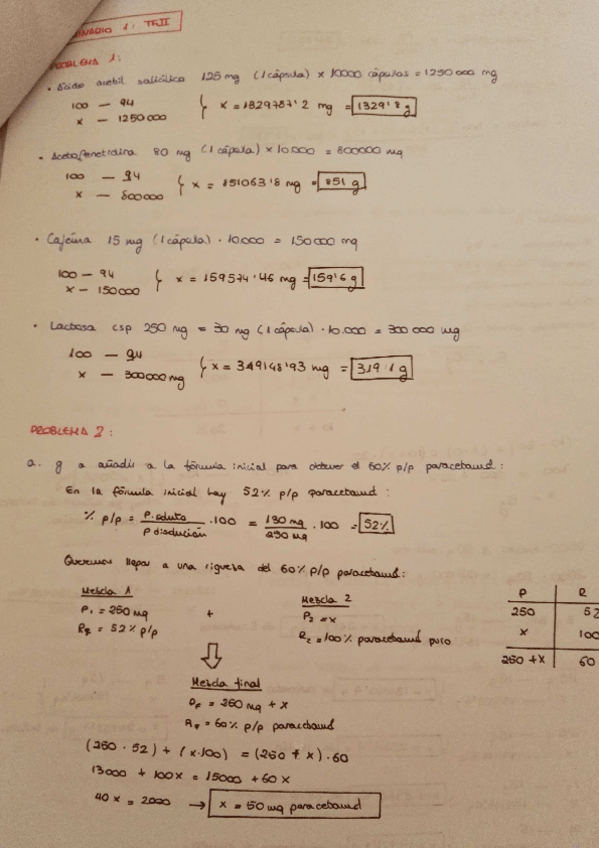 SEMINARIO 1: TFII
PROBLEMA 1:
• Ácido acetil salicílico 125 mg (1 cápsula) × 10000 cápsulas = 1250 000 mg
100 — 94
x — 1250000 } x = 1329787'2 mg = 1329'8 g
• Acetofenetidina 80 mg (1 cápsula) × 10.000 = 800000 mg
100 — 94
x — 800000 } x = 851063'8 mg = 851 g
• Cafeína 15 mg (1 cápsula) · 10.000 = 150 000 mg
100 — 94
x — 150000 } x = 159574'46 mg = 159'6 g
• Lactosa csp 250 mg = 30 mg (1 cápsula) · 10.000 = 300 000 mg
100 — 94
x — 300000 mg } x = 349148'93 mg = 319'1 g
PROBLEMA 2:
a. g a añadir a la fórmula inicial para obtener el 60% p/p paracetamol:
En la fórmula inicial hay 52% p/p paracetamol:
% p/p = P. soluto / P disolución · 100 = 130 mg / 250 mg · 100 = 52%
Queremos llegar a una riqueza del 60% p/p paracetamol:
Mezcla 1 + Mezcla 2
P₁ = 250 mg P₂ = x
R₁ = 52% p/p R₂ = 100% paracetamol puro
P R
250 52
x 100
250 + x 60
Mezcla final
PF = 250 mg + x
RF = 60% p/p paracetamol
(250 · 52) + (x · 100) = (250 + x) · 60
13000 + 100x = 15000 + 60x
40x = 2000 → x = 50 mg paracetamol